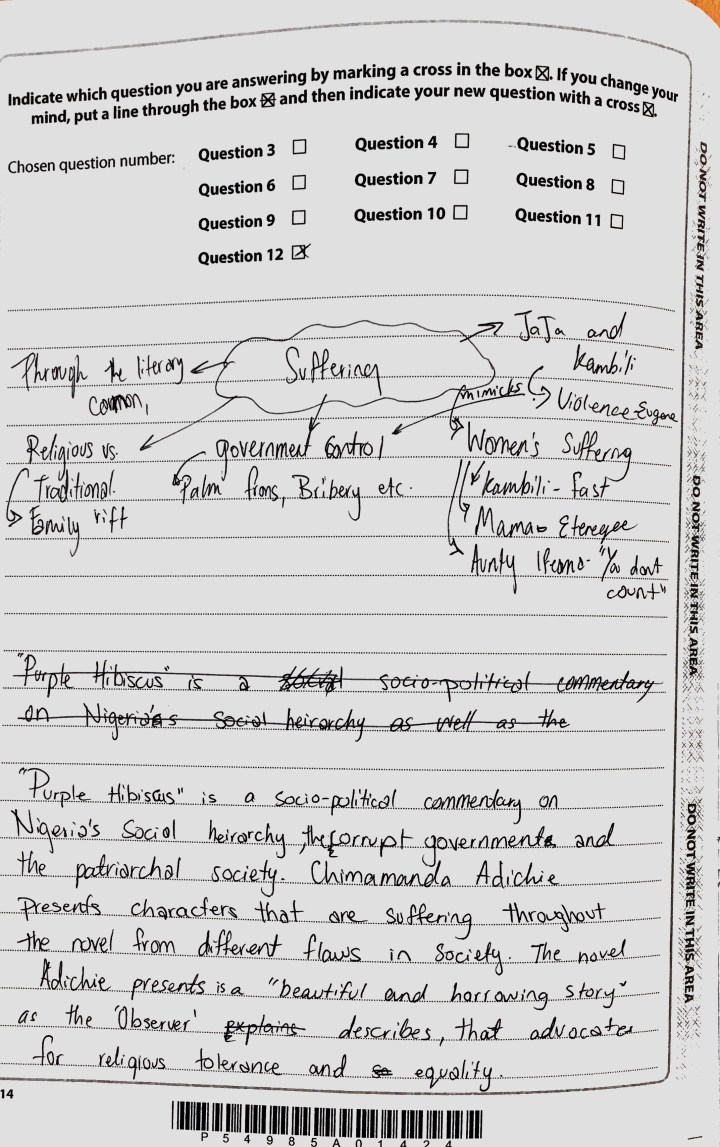 Indicate which question you are answering by marking a cross in the box ☒. If you change your
mind, put a line through the box ☒ and then indicate your new question with a cross ☒.
Chosen question number: Question 3 ☐ Question 4 ☐ Question 5 ☐
Question 6 ☐ Question 7 ☐ Question 8 ☐
Question 9 ☐ Question 10 ☐ Question 11 ☐
Question 12 ☒
Suffering
Through the literary
Religious vs.
Traditional.
Family rift
government control
Palm frons, Bribery etc.
JaJa and
Kambili
Violence-Eugene
mimicks
Women's Suffering
Kambili - fast
Mama
Aunty Ifeoma- "You dont
count"
"Purple Hibiscus" is a social socio-political commentary
on Nigeria's Social heirarchy as well as the
"Purple Hibiscus" is a socio-political commentary on
Nigeria's Social heirarchy, the corrupt governments and
the patriarchal society. Chimamanda Adichie
presents characters that are suffering throughout
the novel from different flaws in Society. The novel
Adichie presents is a "beautiful and harrowing story"
as the 'Observer' explains describes, that advocates
for religious tolerance and so equality.
14
P54985A01424
DO NOT WRITE IN THIS AREA
DO NOT WRITE IN THIS AREA
DO NOT WRITE IN THIS AREA